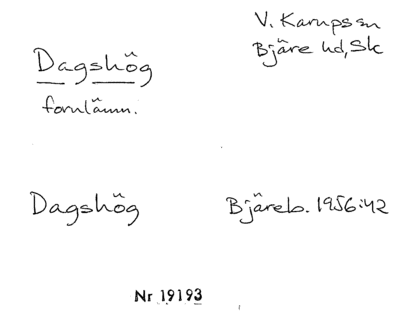 Dagshög
fornlämn.
V. Karups sn
Bjäre hd, Sk
Dagshög
Bjäreb. 1956:42
Nr 19193